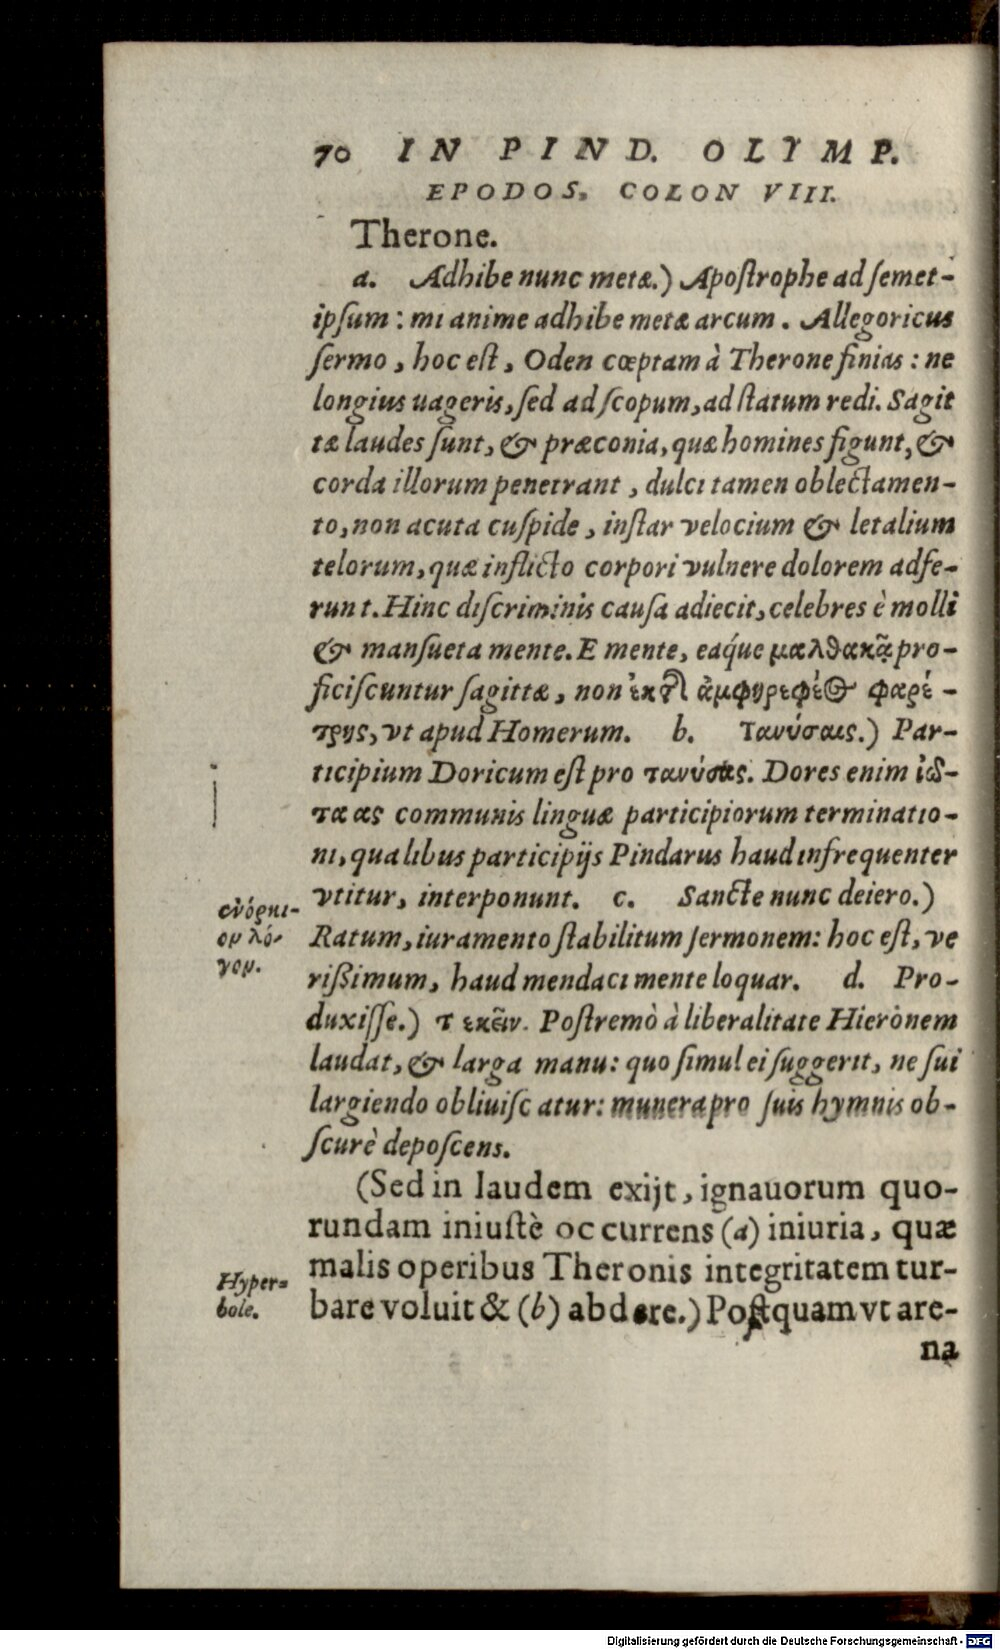 70 IN PIND. OLYMP.
EPODOS. COLON VIII.
Therone.
a. Adhibe nunc metæ.) Apoſtrophe ad ſemet-
ipſum: mi anime adhibe metæ arcum. Allegoricus
ſermo, hoc eſt, Oden cœptam à Therone finias: ne
longius uageris, ſed ad ſcopum, ad ſtatum redi. Sagit
tæ laudes ſunt, & præconia, quæ homines figunt, &
corda illorum penetrant, dulci tamen oblectamen-
to, non acuta cuſpide, inſtar velocium & letalium
telorum, quæ inflicto corpori vulnere dolorem adfe-
runt. Hinc diſcriminis cauſa adiecit, celebres è molli
& manſueta mente. E mente, eaq́ue μαλθακᾷ pro-
ficiſcuntur ſagittæ, non ἐκ τῆ ἀμφηρεφέος φαρέ-
τρης, vt apud Homerum. b. Τανύσαις.) Par-
ticipium Doricum eſt pro τανύσας. Dores enim ἰῶ-
τα ας communis linguæ participiorum terminatio-
ni, qualibus participijs Pindarus haud infrequenter
vtitur, interponunt. c. Sancte nunc deiero.)
ἐνόρκι-
ον λό-
γον.
Ratum, iuramento ſtabilitum ſermonem: hoc eſt, ve
rißimum, haud mendaci mente loquar. d. Pro-
duxiſſe.) τεκεῖν. Poſtremò à liberalitate Hierònem
laudat, & larga manu: quo ſimul ei ſuggerit, ne ſui
largiendo obliuiſcatur: munera pro ſuis hymnis ob-
ſcurè depoſcens.
(Sed in laudem exijt, ignauorum quo-
rundam iniuſtè occurrens (a) iniuria, quæ
malis operibus Theronis integritatem tur-
Hyper-
bole.
bare voluit & (b) abdere.) Poſtquam vt are-
na
Digitalisierung gefördert durch die Deutsche Forschungsgemeinschaft - DFG